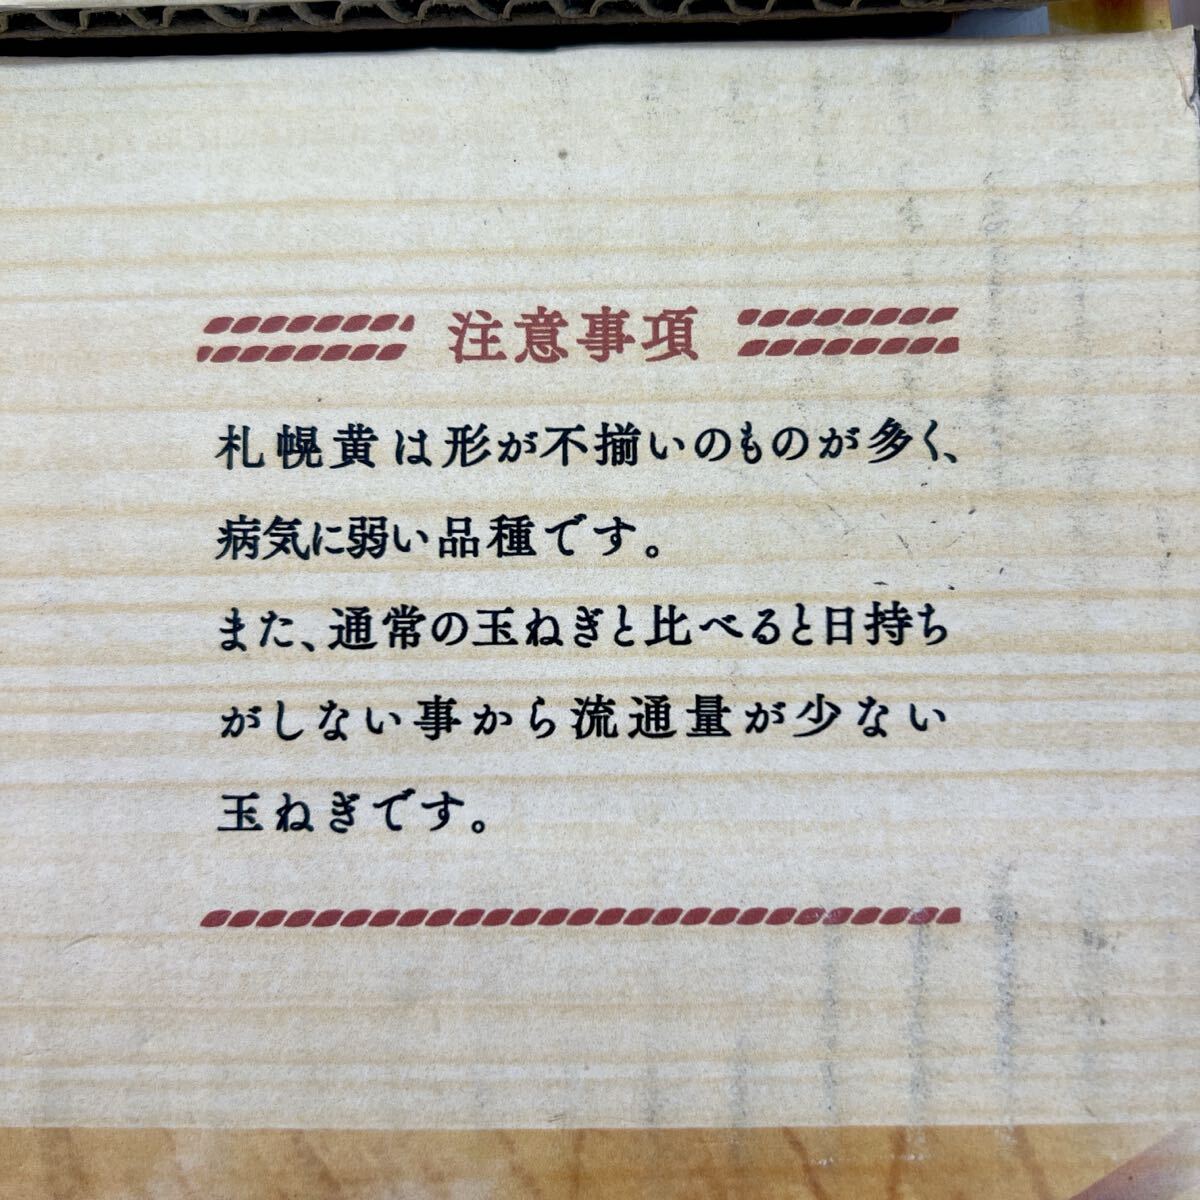 注意事項
札幌黄は形が不揃いのものが多く、
病気に弱い品種です。
また、通常の玉ねぎと比べると日持ち
がしない事から流通量が少ない
玉ねぎです。